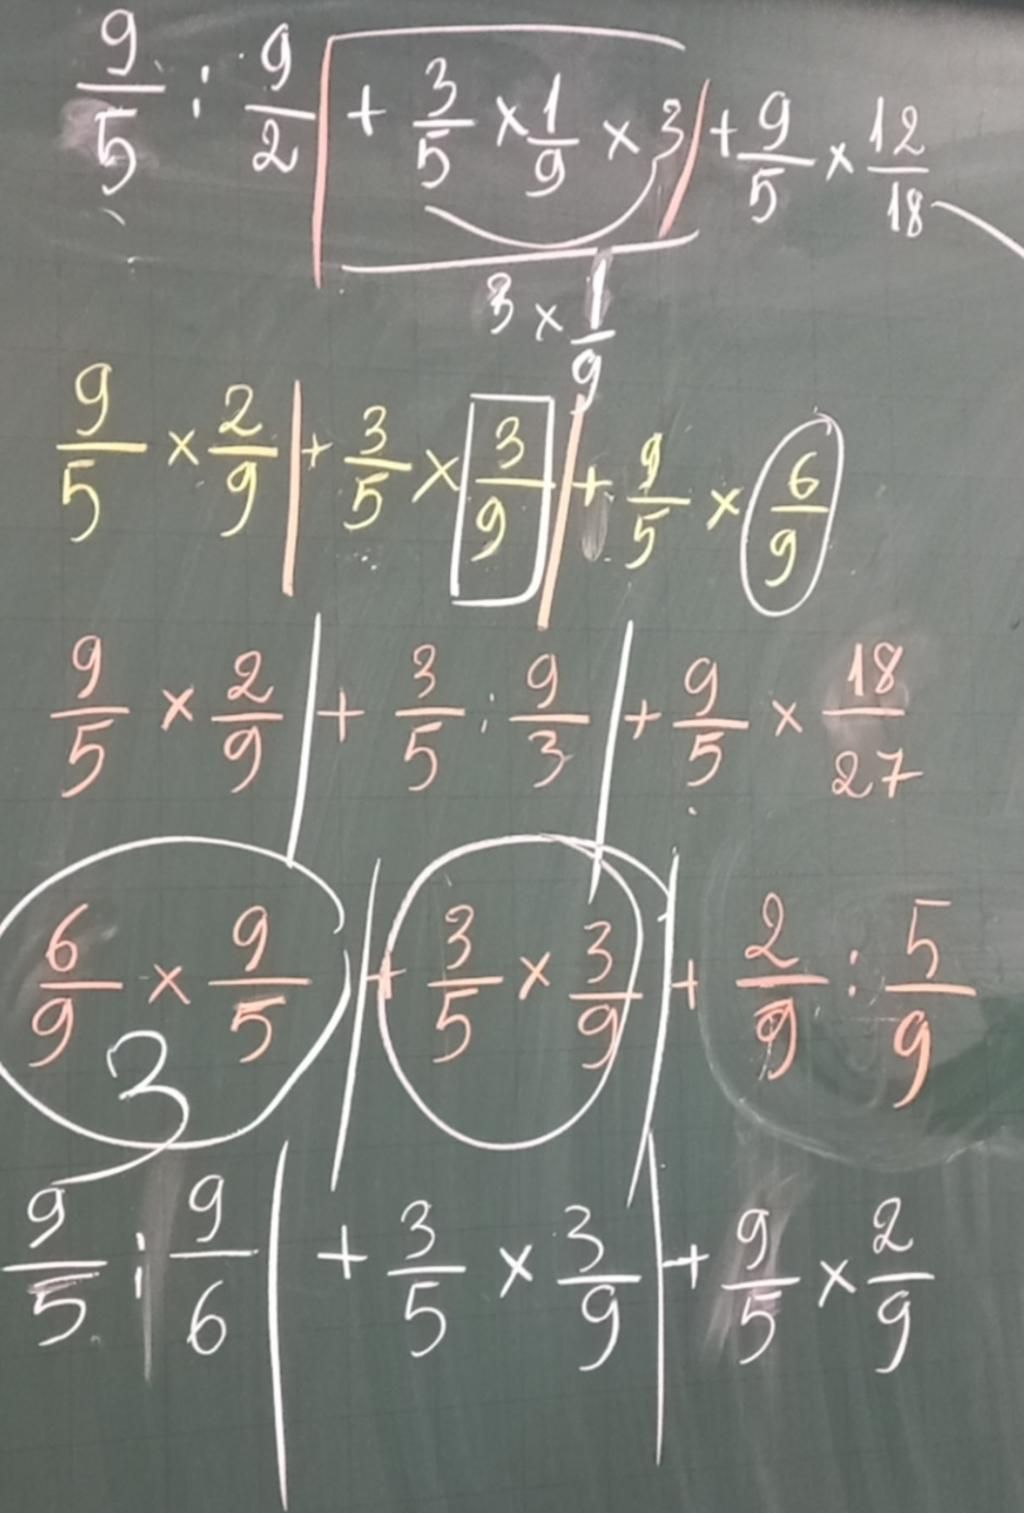 9/5 : 9/2 + 3/5 × 1/9 × 3 + 9/5 × 12/18
3 × 1/9
9/5 × 2/9 + 3/5 × 3/9 + 9/5 × 6/9
9/5 × 2/9 + 3/5 : 9/3 + 9/5 × 18/27
6/9 × 9/5 + 3/5 × 3/9 + 2/9 : 5/9
3
9/5 : 9/6 + 3/5 × 3/9 + 9/5 × 2/9